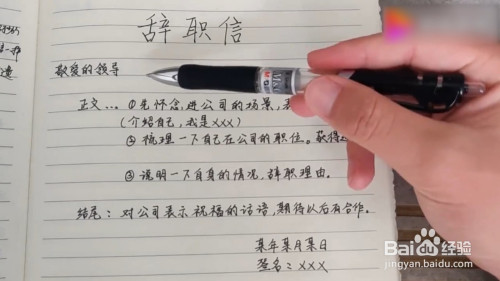 辞职信
敬爱的领导
正文... ①先怀念,进公司的场景,表
(介绍自己,我是xxx)
② 梳理一下自己在公司的职位。获得
③ 说明一下自身的情况,辞职理由。
结尾: 对公司表示祝福的话语,期待以后有合作。
某年某月某日
签名:xxx
Baidu 经验
jingyan.baidu.com